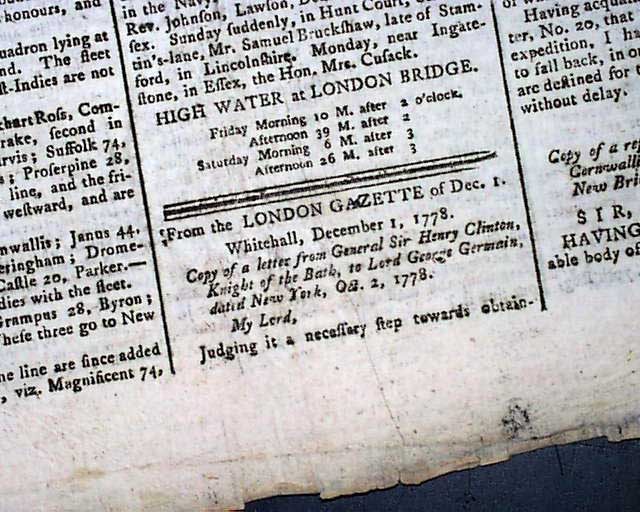 honours, and
uadron lying at
nd. The fleet
ſt-Indies are not
khart Roſs, Com-
rake, ſecond in
rvis; Suffolk 74,
s; Proſerpine 28,
line, and the fri-
weſtward, and are
nwallis; Janus 44.
eringham; Drome-
Caſtle 20, Parker.—
dies with the fleet.
Grampus 28, Byron;
Theſe three go to New
ne line are ſince added
, viz. Magnificent 74,
in the Navy.
Rev. Johnſon, Lawſon,
ſex. Sunday ſuddenly, in Hunt Court,
tin's-lane, Mr. Samuel Bruckſhaw, late of Stam-
ford, in Lincolnſhire. Monday, near Ingate-
ſtone, in Eſſex, the Hon. Mrs. Cuſack.
HIGH WATER at LONDON BRIDGE.
Friday Morning 10 M. after 2 o'clock.
Afternoon 39 M. after 2
Saturday Morning 6 M. after 3
Afternoon 26 M. after 3
From the LONDON GAZETTE of Dec. 1.
Whitehall, December 1, 1778.
Copy of a letter from General Sir Henry Clinton,
Knight of the Bath, to Lord George Germain,
dated New York, Oct. 2, 1778.
My Lord,
Judging it a neceſſary ſtep towards obtain-
Having acqua
ter, No. 20, that
expedition, I ha
to fall back, in o
are deſtined for t
without delay.
Copy of a rep
Cornwallis
New Bri
SIR,
HAVING
able body of